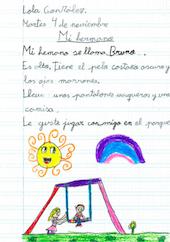 Lola González.
Martes 4 de noviembre
Mi hermano
Mi hermano se llama Bruno.
Es alto, tiene el pelo castaño oscuro y
los ojos marrones.
Lleva: unos pantalones vaqueros y una
camisa.
Le gusta jugar conmigo en el parque